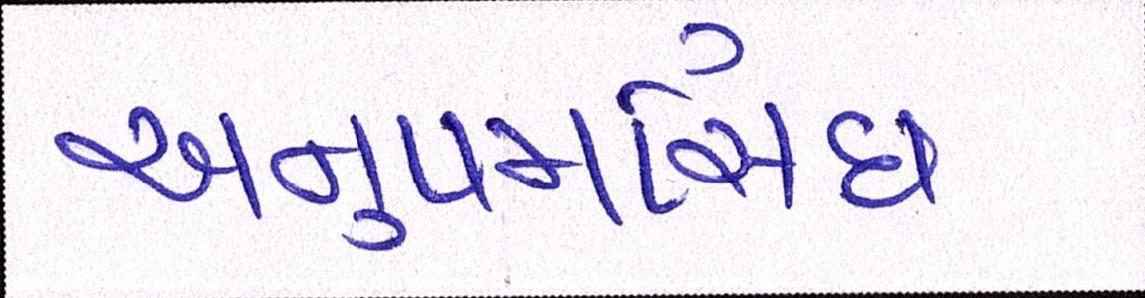 અનુપમસિંઘ